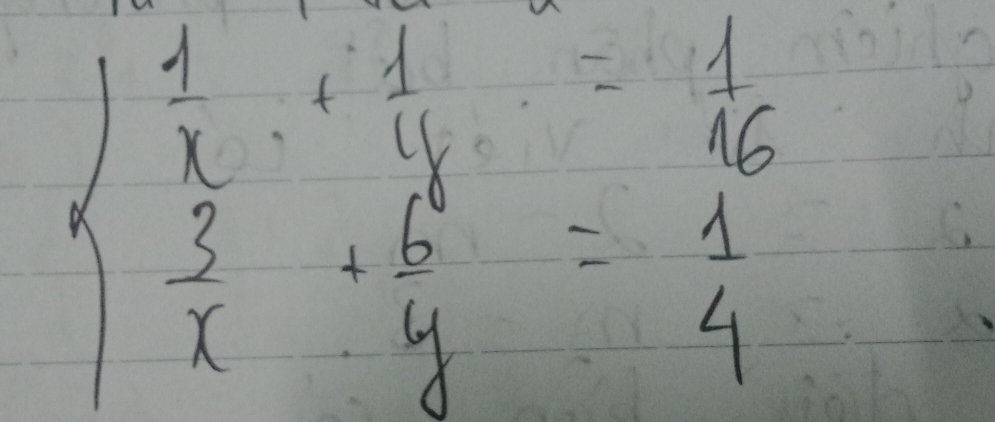 1/x + 1/y = 1/16
3/x + 6/y = 1/4